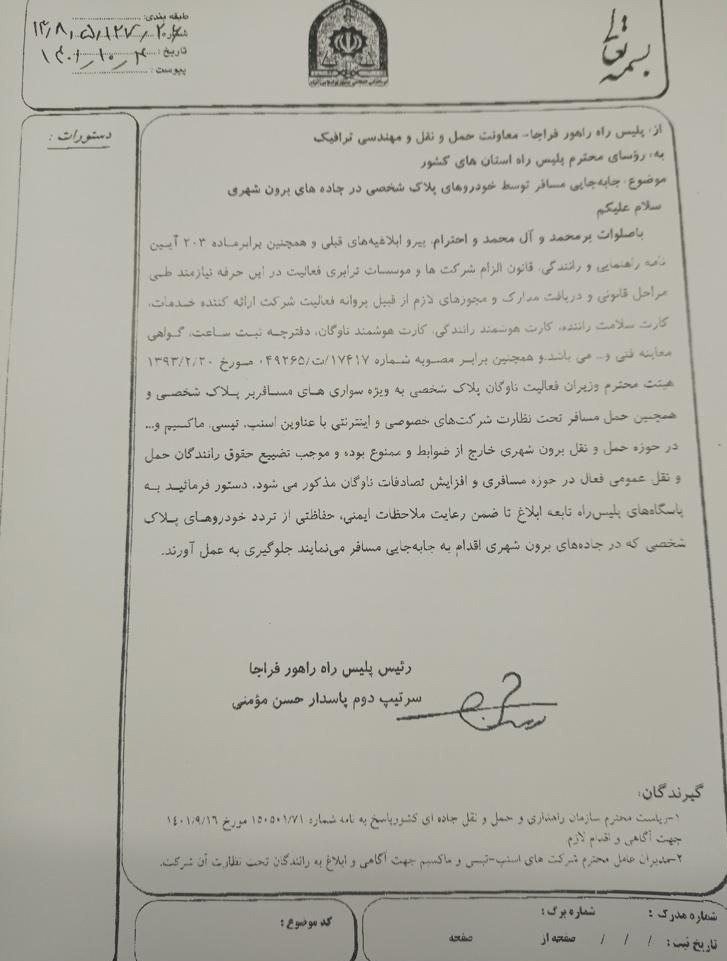 بسمه تعالی
طبقه بندی:
شماره
تاریخ: ۱۴۰۱/۱۰/۴
پیوست:
دستورات:
از: پلیس راه راهور فراجا- معاونت حمل و نقل و مهندسی ترافیک
به: رؤسای محترم پلیس راه استان های کشور
موضوع: جابه‌جایی مسافر توسط خودروهای پلاک شخصی در جاده های برون شهری
سلام علیکم
باصلوات برمحمد و آل محمد و احترام، پیرو ابلاغیه‌های قبلی و همچنین برابرماده ۲۰۳ آیین
نامه راهنمایی و رانندگی، قانون الزام شرکت ها و موسسات ترابری فعالیت در این حرفه نیازمند طی
مراحل قانونی و دریافت مدارک و مجوزهای لازم از قبیل پروانه فعالیت شرکت ارائه کننده خدمات،
کارت سلامت راننده، کارت هوشمند رانندگی، کارت هوشمند ناوگان، دفترچه ثبت ساعت، گواهی
معاینه فنی و... می باشد.و همچنین برابر مصوبه شماره ۱۷۴۱۷/ت/۰۴۹۲۶۵ مورخ ۱۳۹۳/۲/۲۰
هیئت محترم وزیران فعالیت ناوگان پلاک شخصی به ویژه سواری های مسافربر پلاک شخصی و
همچنین حمل مسافر تحت نظارت شرکت‌های خصوصی و اینترنتی با عناوین اسنپ، تپسی، ماکسیم و...
در حوزه حمل و نقل برون شهری خارج از ضوابط و ممنوع بوده و موجب تضییع حقوق رانندگان حمل
و نقل عمومی فعال در حوزه مسافری و افزایش تصادفات ناوگان مذکور می شود. دستور فرمائید به
پاسگاه‌های پلیس‌راه تابعه ابلاغ تا ضمن رعایت ملاحظات ایمنی، حفاظتی از تردد خودروهای پلاک
شخصی که در جاده‌های برون شهری اقدام به جابه‌جایی مسافر می‌نمایند جلوگیری به عمل آورند.
رئیس پلیس راه راهور فراجا
سرتیپ دوم پاسدار حسن مؤمنی
گیرندگان:
۱-ریاست محترم سازمان راهداری و حمل و نقل جاده ای کشورپاسخ به نامه شماره ۱۵۰۵۰۱/۷۱ مورخ ۱۴۰۱/۹/۱۶
جهت آگاهی و اقدام لازم
۲-مدیران عامل محترم شرکت های اسنپ-تپسی و ماکسیم جهت آگاهی و ابلاغ به رانندگان تحت نظارت آن شرکت.
کد موضوع:
شماره مدرک: شماره برگ:
تاریخ ثبت: / / / صفحه از صفحه